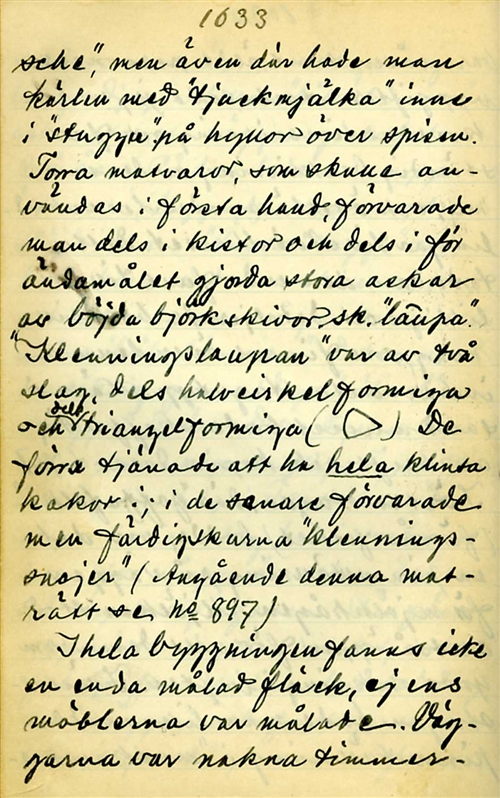 1633
sche", men även där hade man
kärlen med "tjuckmjälka" inne
i "stuggu" på hyllor över spisen.
Torra matvaror, som skulle an-
vändas i första hand, förvarade
man dels i kistor och dels i för
ändamålet gjorda stora askar
av böjda björkskivor, sk. "laupa".
"Klenningslaupan" var av två
slag, dels halvcirkelformiga
och dels triangelformiga ( ) De
förra tjänade att ha hela klinta
kakor i; i de senare förvarade
men färdigskurna "klennings-
snojer" (Angående denna mat-
rätt se, No 897)
I hela byggningen fanns icke
en enda målad fläck, ej ens
möblerna var målade. Väg-
garna var nakna timmer-